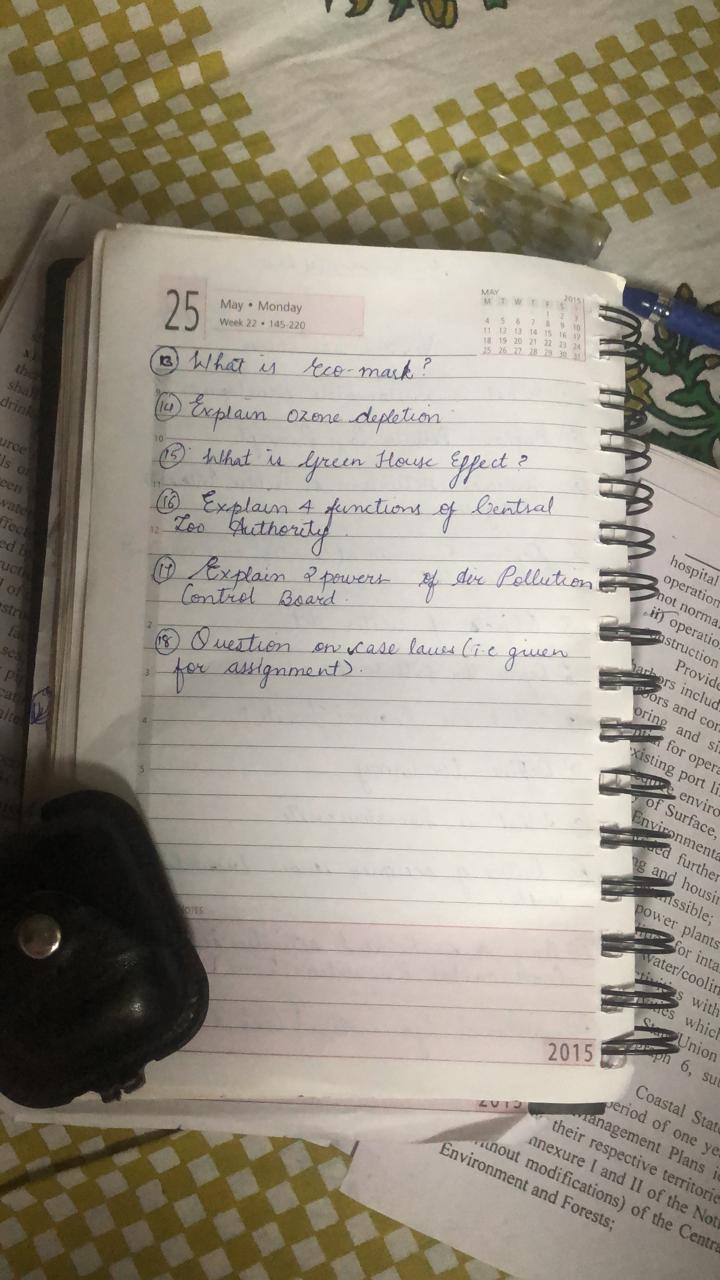 25
May • Monday
Week 22 • 145-220
MAY 2015
M T W T F S S
1 2 3
4 5 6 7 8 9 10
11 12 13 14 15 16 17
18 19 20 21 22 23 24
25 26 27 28 29 30 31
13 What is Eco-mark?
14 Explain ozone depletion
15 What is Green House Effect?
16 Explain 4 functions of Central
Zoo Authority.
17 Explain 2 powers of Air Pollution
Control Board.
18 Question on case laws (i.e given
for assignment).
10
11
12
2
3
4
5
NOTES
2015
2015
hospital
operation
not norma
ii) operatio
nstruction
Provide
harbors includ
oors and con
oring and si
for opera
existing port li
enviro
of Surface,
Environmenta
further
ng and housi
missible;
power plants
for inta
water/coolin
with
which
Union
6, su
Coastal State
period of one ye
Management Plans
their respective territori
nnexure I and II of the Noti
thout modifications) of the Centra
Environment and Forests;